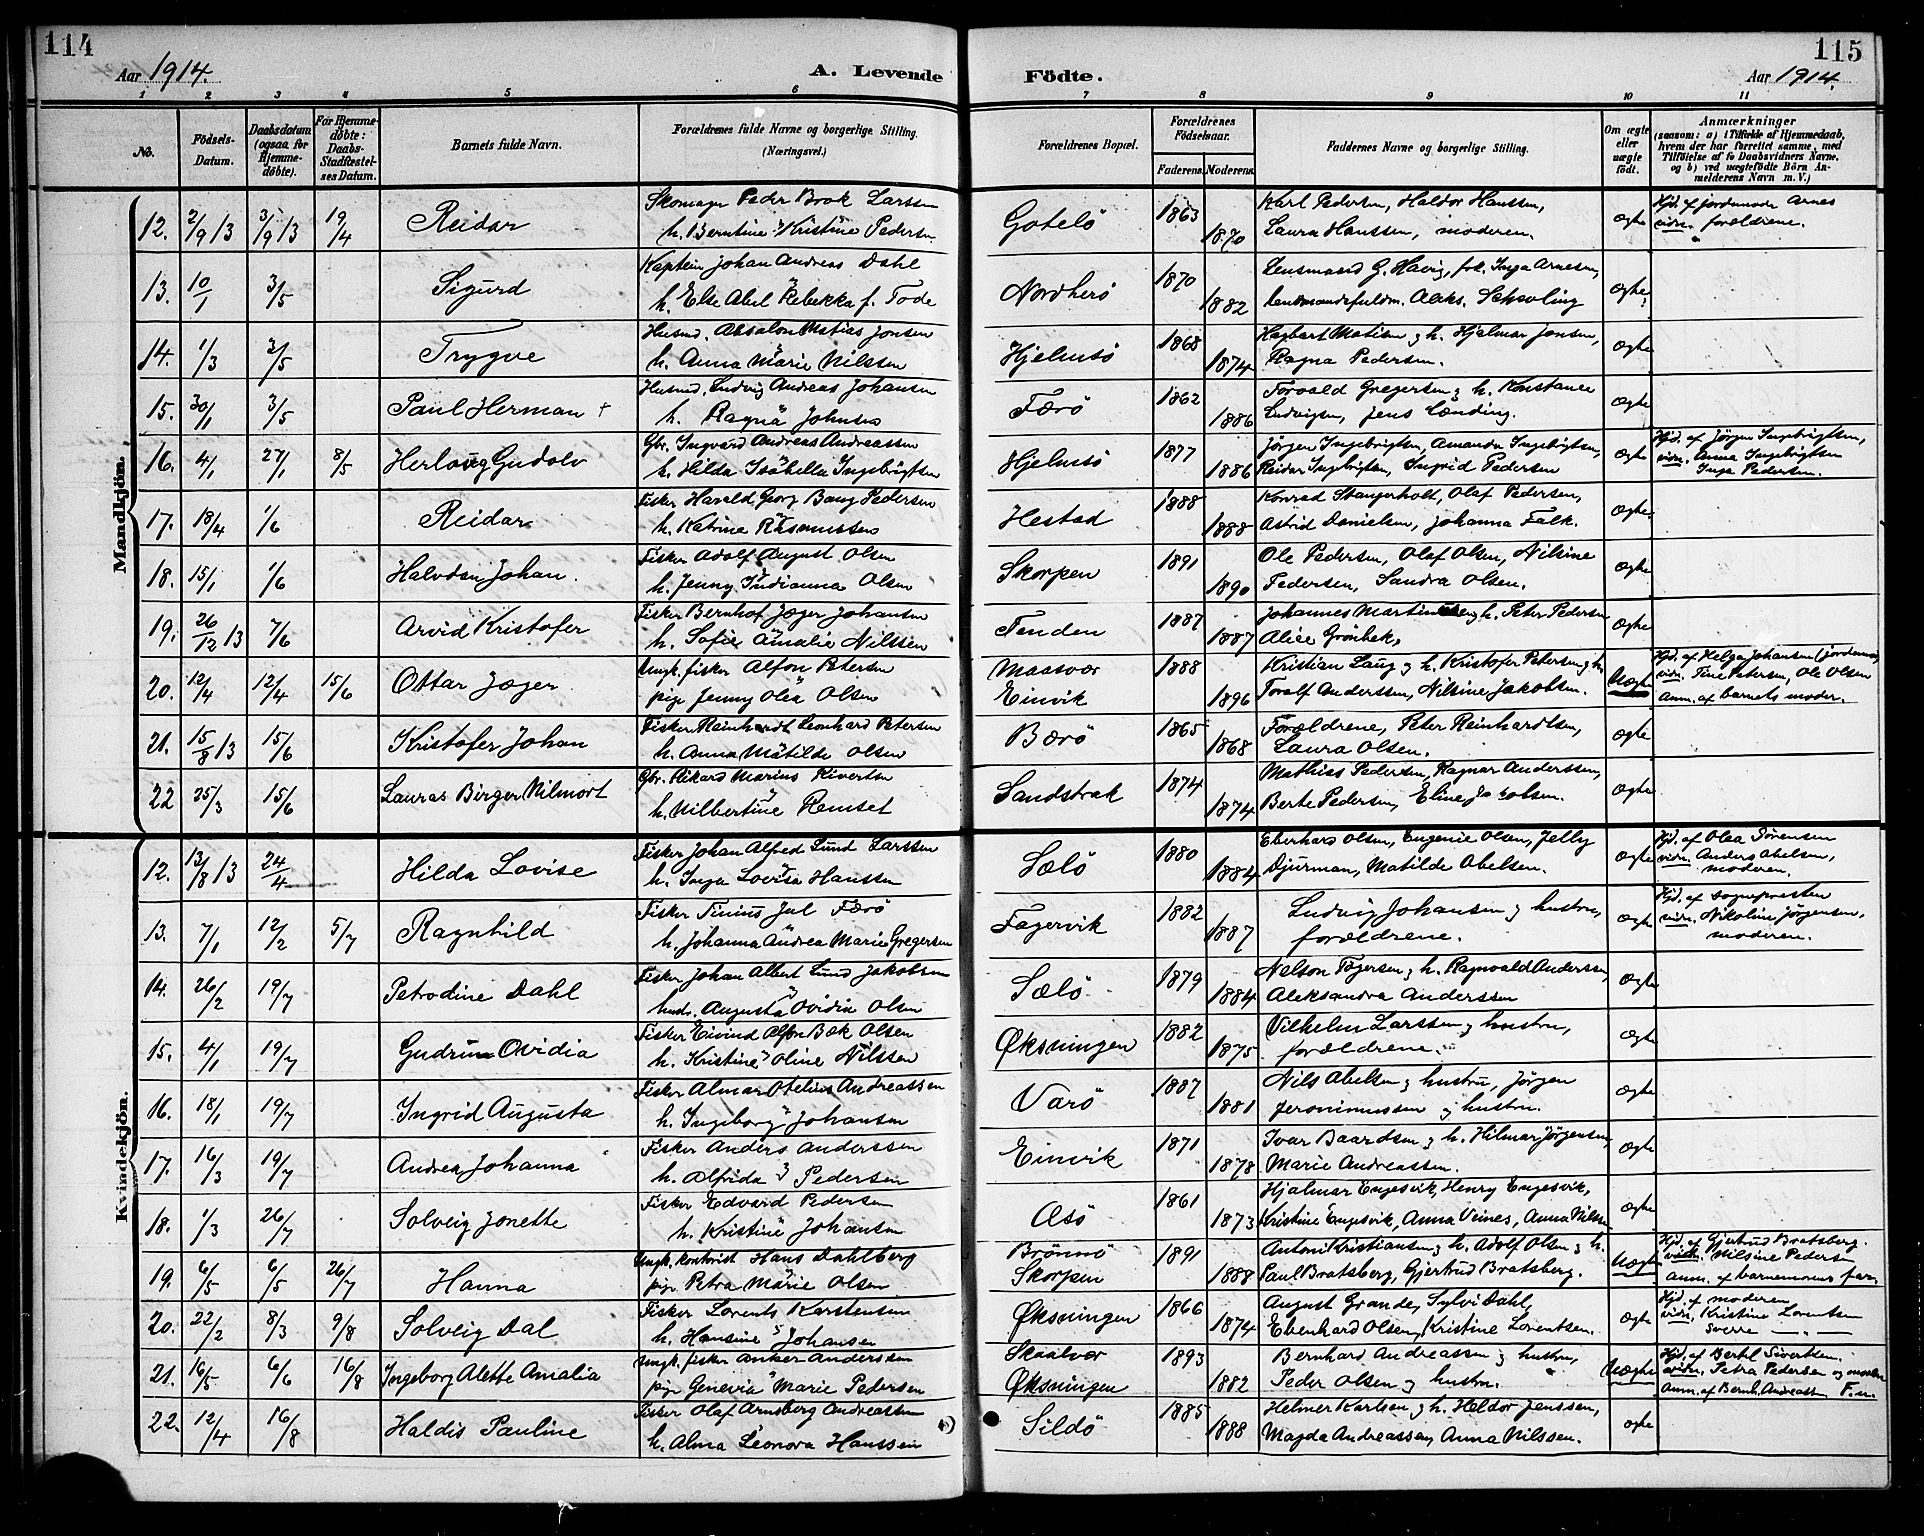 114
115
Aar 1914.
A. Levende
Födte.
Aar 1914.
1 2 3 4 5 6 7 8 9 10 11
No.
Födsels-Datum.
Daabsdatum (ogsaa for Hjemme-døbte).
For Hjemme-döbte: Daabs-Stadfæstel-ses Datum.
Barnets fulde Navn.
Forældrenes fulde Navne og borgerlige Stilling. (Næringsvei.)
Forældrenes Bopæl.
Forældrenes Födselsaar.
Faderens. Moderens.
Faddernes Navne og borgerlige Stilling.
Om ægte eller uægte födt.
Anmærkninger
(saasom: a) i Tilfælde af Hjemmedaab, hvem der har forrettet samme, med Tilföielse af to Daabsvidners Navne, og b) ved uægtefödte Börn An-melderens Navn m. V.)
Mandkjön.
12. 2/9 13 3/9 13 19/4 Reidar Skomager Peder Brok Larssen Gotelö 1863 Karl Pedersen, Haldor Hanssen, ægte Hjd. af jordemoder Arnes
h. Berntine Kristine Pedersen 1870 Laura Hanssen, moderen. vidn. forældrene.
13. 10/1 3/5 Sigurd Kaptein Johan Andreas Dahl Nordherö 1870 Lensmand G. Havig, frk. Inga Arnesen, ægte
h. Else Abel Rebekka f. Tode 1882 lensmandsfuldm. Aleks. Schsöling
14. 1/3 3/5 Trygve Husmd. Absalon Matias Jonsen Hjelmsö 1868 Hagbart Matisen og h. Hjalmar Jonsen, ægte
h. Anna Marie Nilssen 1874 Ragna Pedersen.
15. 30/1 3/5 Paul Herman + Husmd. Ludvig Andreas Johansen Færö 1862 Torvald Gregersen og h. Konstance ægte
h. Ragna Johnsen 1886 Ludvigsen, Jens Lænding.
16. 4/1 27/1 8/5 Herlaug Gudolv Gbr. Ingvard Andreas Andreassen Hjelmsö 1877 Jørgen Ingebrigtsen, Amanda Ingebrigtsen, ægte Hjd. af Jørgen Ingebrigtsen,
h. Hilda Isabella Ingebrigtsen 1886 Reidar Ingebrigtsen, Ingrid Pedersen vidn. Anna Ingebrigtsen
Inga Pedersen.
17. 18/4 1/6 Reidar Fisker Harald Georg Bang Pedersen Hestad 1888 Konrad Stangerholt, Olaf Pedersen, ægte
h. Katrine Rasmussen 1888 Astrid Danielsen, Johanna Falk.
18. 15/1 1/6 Halvdan Johan. Fisker Adolf August Olsen Skorpen 1891 Ole Pedersen, Olaf Olsen, Nilsine ægte
h. Jenny Indianna Olsen 1890 Pedersen, Sandra Olsen.
19. 26/12 13 7/6 Arvid Kristofer Fisker Bernhof Jæger Johansen Tenden 1887 Johannes Martinsen og h. Peter Pedersen ægte
h. Sofie Amalie Nilssen 1887 Alice Grønbek,
20. 12/4 12/4 15/6 Ottar Jæger Ungk. fisker Alfon Petersen Maasvær 1888 Kristian Laug og h. Kristofer Petersen og h. Uægte Hjd. af Helga Johansen (jordemor)
pige Jenny Olea Olsen Einvik 1896 Toralf Anderssen, Nilsine Jakobsen. vidn. Tine Petersen, Ole Olsen
Anm. af barnets moder.
21. 15/8 13 15/6 Kristofer Johan Fisker Reinhardt Leonhard Petersen Bærö 1865 Forældrene, Peter Reinhardtsen, ægte
h. Anna Matilde Olsen 1868 Laura Olsen.
22 25/3 15/6 Lauras Birger Vilmort Gbr. Rikard Marius Sivertsen Sandstrak 1874 Mathias Pedersen, Ragnar Anderssen, ægte
h. Vilbertine Remset 1874 Berte Pedersen, Eline Jakobsen.
Kvindekjön.
12. 13/8 13 24/4 Hilda Lovise Fisker Johan Alfred Lund Larssen Sælö 1880 Eberhard Olsen, Eugenie Olsen, Jelly ægte Hjd. af Olea Sörensen
h. Inga Lovisa Hanssen 1884 Djurman, Matilde Abelsen. vidn. Anders Abelsen,
moderen.
13. 7/1 12/2 5/7 Ragnhild Fisker Tinius Jul Færö Fagervik 1882 Ludvig Johansen og hustru, ægte Hjd. af sognepresten
h. Johanna Andrea Marie Gregersen 1887 forældrene. vidn. Nikoline Jørgensen,
moderen.
14. 26/2 19/7 Petrodine Dahl Fisker Johan Albert Lund Jakobsen Sælö 1879 Nelson Tögersen og h. Ragnvald Anderssen, ægte
hust. Augusta Ovidia Olsen 1884 Aleksandra Anderssen
15. 4/1 19/7 Gudrun Ovidia Fisker Eivind Alfon Bæk Olsen Øksningen 1882 Vilhelm Larssen og hustru, ægte
h. Kristine Oline Nilssen 1875 forældrene.
16. 18/1 19/7 Ingrid Augusta Fisker Almar Otelius Andreassen Varö 1887 Nils Abelsen og hustru, Jørgen ægte
h. Ingeborg Johansen 1881 Jeronimussen og hustru.
17. 16/3 19/7 Andrea Johanna Fisker Anders Anderssen Einvik 1871 Ivar Baardsen og h. Hilmar Jørgensen, ægte
h. Alfrida Pedersen 1878 Marie Andreassen.
18. 1/3 26/7 Solveig Jonette Fisker Edvard Pedersen Asö 1861 Hjalmar Engesvik, Henry Engesvik, ægte
h. Kristine Johansen 1873 Kristine Engesvik, Anna Veines, Anna Nilssen
19. 6/5 6/5 26/7 Hanna Ungk. kontorist Hans Dahlberg Brönnö 1891 Anton Kristiansen og h. Adolf Olsen og h. Uægte Hjd. af Gjertrud Bratsberg.
pige Petra Marie Olsen Skorpen 1888 Paul Bratsberg, Gjertrud Bratsberg. vidn. Nilsine Pedersen
Anm. af barnemorens far
20. 22/2 8/3 9/8 Solveig Dal Fisker Lorents Karstensen Øksningen 1866 August Grande, Sylvi Dahl, ægte Hjd. af moderen
h. Hansine Johansen 1874 Ebenhard Olsen, Kristine Lorentsen. vidn. Kristine Lorentsen
Sverre — „ —
21. 16/5 6/6 16/8 Ingeborg Alette Amalia Ungk. fisker Anker Anderssen Skaalvær 1893 Bernhard Andreassen og hustru, Uægte Hjd. af Bertel Sivertsen.
pige Genevia Marie Pedersen Øksningen 1882 Peder Olsen og hustru. vidn. Petra Pedersen og moder
Anm. af Bernh. Andreassen
22. 12/4 16/8 Haldis Pauline Fisker Olaf Arnsberg Andreassen Sildö 1885 Helmer Karlsen og h. Heldor Jenssen, ægte
h. Alma Leonora Hanssen 1888 Magda Andreassen, Anna Nilssen.